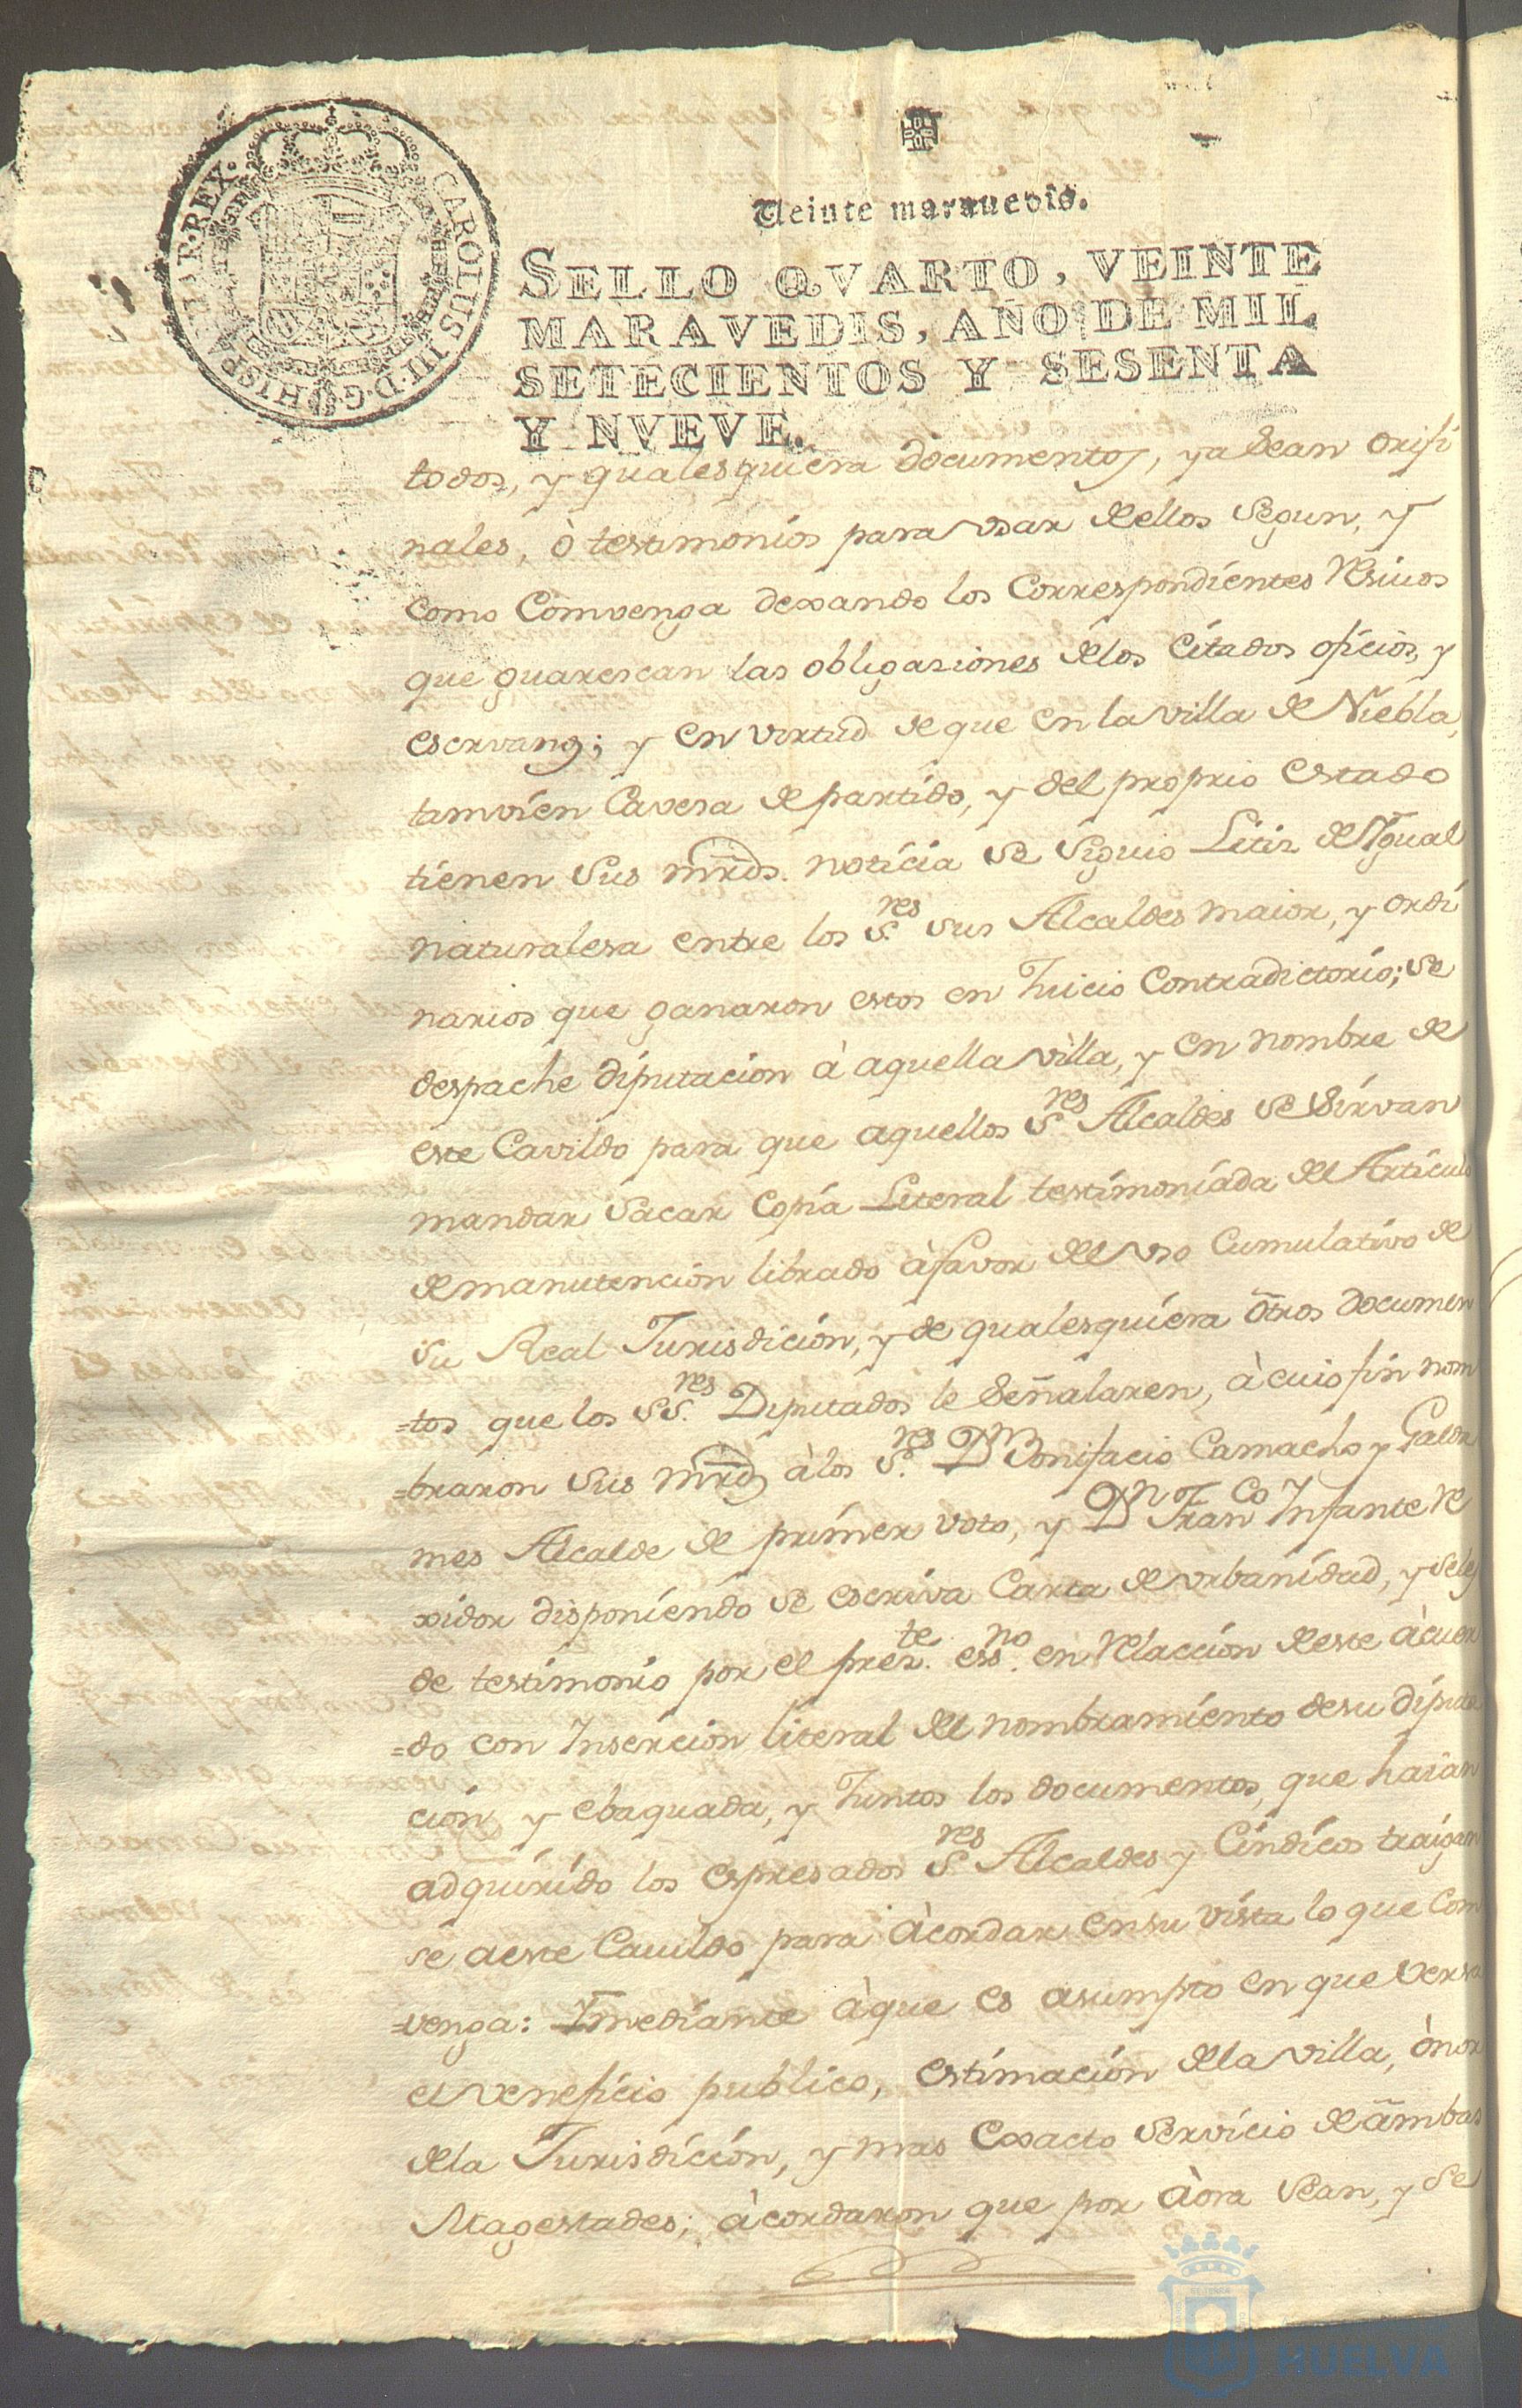 CAROLUS III·D·G·HISPANIAR·REX·
Veinte maravedis.
SELLO QVARTO, VEINTE
MARAVEDIS, AÑO DE MIL
SETECIENTOS Y SESENTA
Y NVEVE.
todos, y qualesquiera documentos, ya sean orifi
nales, ò testimonios para usar dellos segun, y
como Comvenga dexando los Correspondientes Resivos
que guarescan las obligasiones delos citados oficios, y
escrvano; y en virtud de que en la villa de Niebla,
tamvien Cavesa de partido, y del proprio estado
tienen sus mrds. noticia se siguio Litis de Ygual
naturalesa entre los S.res sus Alcaldes maior, y ordi
narios que ganaron estos en Juicio Contradictorio; se
despache diputacion à aquella villa, y en nombre de
este Cavildo para que aquellos S.res Alcaldes se sirvan
mandar sacar Copia Literal testimoniada del Articulo
de manutencion librado à favor del uso Cumulativo de
su Real Jurisdicion, y de qualesquiera otros documen
=tos que los SS.res Diputados le señalaren, à cuio fin nom
=braron sus mrds à los S.res Dn Bonifacio Camacho y Galda
mes Alcalde de primer voto, y Dn Franco Infante Re
xidor disponiendo se escriva Carta de urbanidad, y sele
de testimonio por el preste. essno. en Relaccion de este àcuer
=do con Insercion literal del nombramiento desu diputa
cion, y ebaquada, y Juntos los documentos, que haian
adquirido los espresados S.res Alcaldes y Cindicos traigan
se aeste Cauildo para àcordar ensu vista lo que Com
=venga: Ymediante àque es asumpto en que versa
el veneficio publico, estimacion dela villa, ònor
dela Jurisdicion, y mas Exacto servicio de ambas
Magestades; àcordaron que por àora sean, y se
HUELVA